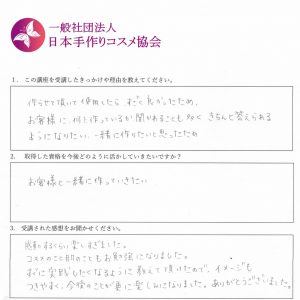 一般社団法人
日本手作りコスメ協会
1. この講座を受講したきっかけや理由を教えてください。
作らせて頂いて使用したら、すごく良かったため、
お客様に、何を作っているか聞かれることも多く きちんと答えられる
ようになりたい、一緒に作りたいと思ったため
2. 取得した資格を今後どのように活かしていきたいですか?
お客様と一緒に作っていきたい
3. 受講された感想をお聞かせください。
感動するくらい楽しすぎました。
コスメのこと肌のこともお勉強になりました。
すぐに実践したくなるように教えて頂けたので、イメージも
つきやすく、今後のことが更に楽しみになりました。ありがとうございました。